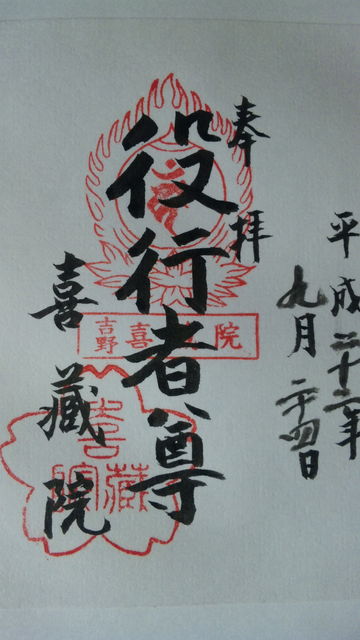 平成二十二年
九月二十四日
奉拝
役行者尊
吉野
喜蔵院
喜蔵院
喜蔵院